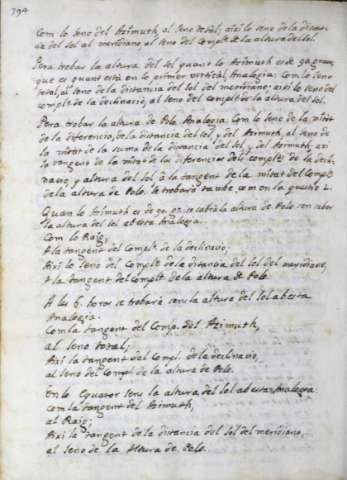 394
Com lo seno del Azimuth, al seno total; aixi lo seno de la distan-
cia del sol al meridiano al seno del Complt. de la altura del sol.
Pera trobar la altura del sol quant lo Azimuth es de 90 graus,
que es quant està en lo primer vertical Analogia: Com lo seno
total, al seno de la distancia del sol del meridiano; aixi lo seno del
complt. de la declinacio, al seno del complt. de la altura del sol.
Pera trobar la altura de Polo Analogia. Com lo seno de la mitat
de la diferencia, de la distancia del sol, y del Azimuth, al seno de
la mitat de la suma de la distancia del sol y del Azimuth, axi
la tangent de la mitat de la diferencia dels complts. de la decli-
nacio, y altura del sol à la tangent de la mitat del Complt.
de la altura de Polo. Se trobarà també, com en la questio 2.
Quan lo Azimuth es de 90. gr. se sabrà la altura de Polo sens saber
la altura del sol ab esta Analogia.
Com lo Raig,
A la tangent del Complt. de la declinacio,
Aixi lo seno del Complt. de la distancia del sol del meridiano,
A la tangent del Complt. de la altura de Polo.
A las 6. horas se trobarà sens la altura del sol ab esta
Analogia.
Com la tangent del Comp. del Azimuth,
al seno total;
Axi la tangent del Compl. de la declinacio,
al seno del Compt. de la altura de Polo.
En lo Equator sens la altura del sol ab esta Analogia
com la tangent del Azimuth,
al Raig;
Axi la tangent de la distancia del sol del meridiano,
al seno de la Altura de Polo.